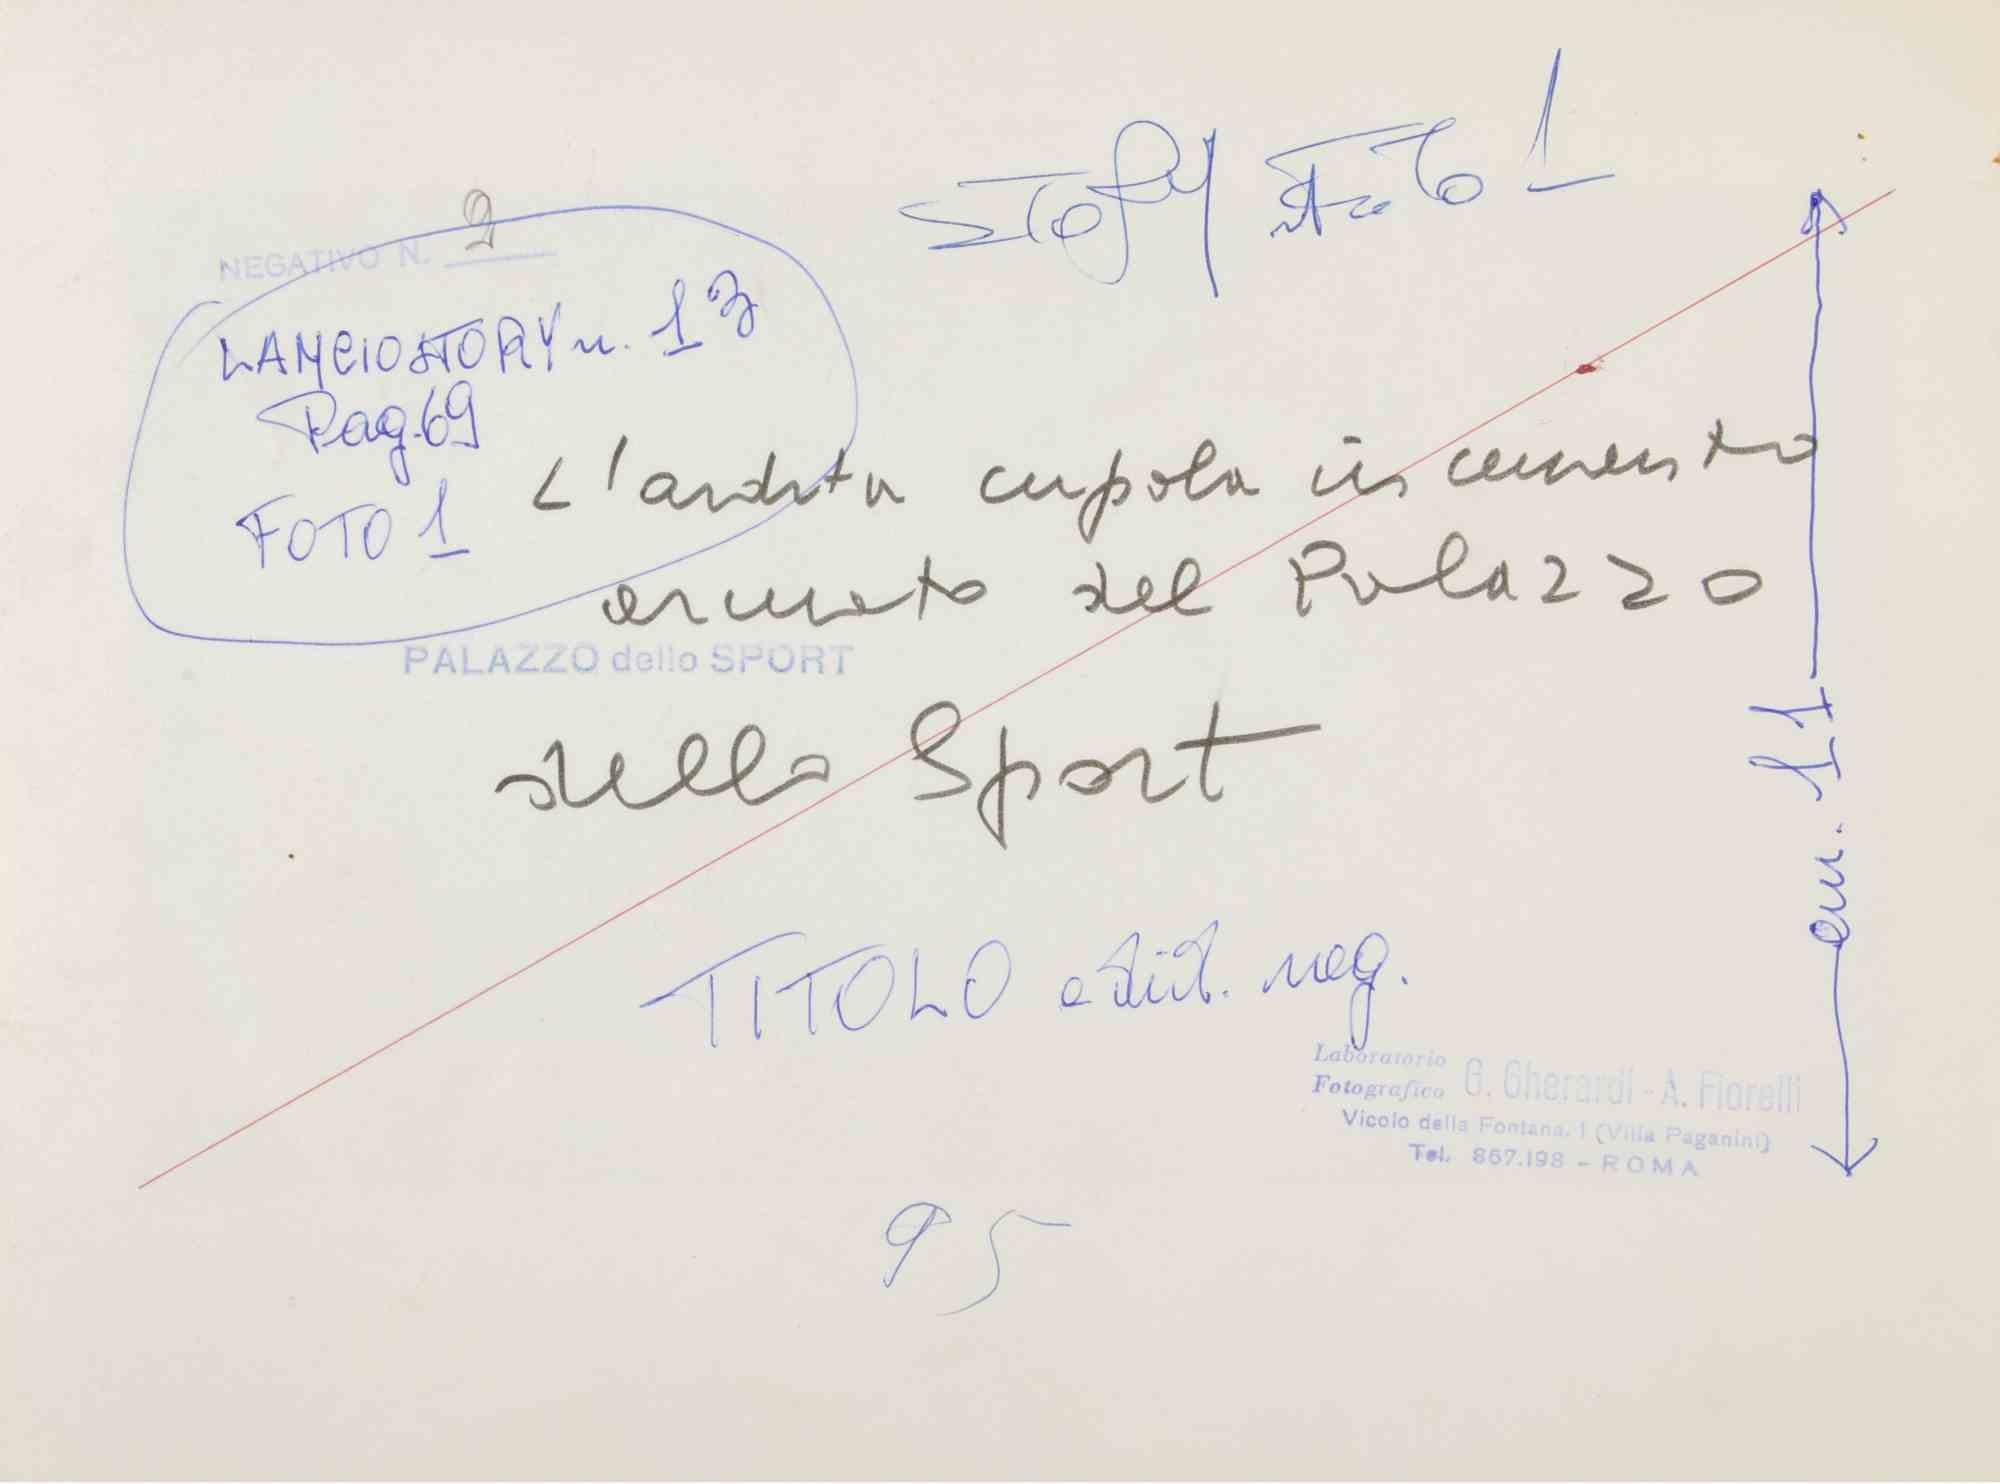 STORY FOTO 1
NEGATIVO N. 2
LANCIOSTORY n. 13
Pag. 69
FOTO 1
L'ardita cupola in cemento
armato del Palazzo
PALAZZO dello SPORT
dello Sport
cm. 11
TITOLO neg.
Laboratorio
Fotografico G. Gherardi - A. Fiorelli
Vicolo della Fontana, 1 (Villa Paganini)
Tel. 867.198 - ROMA
95